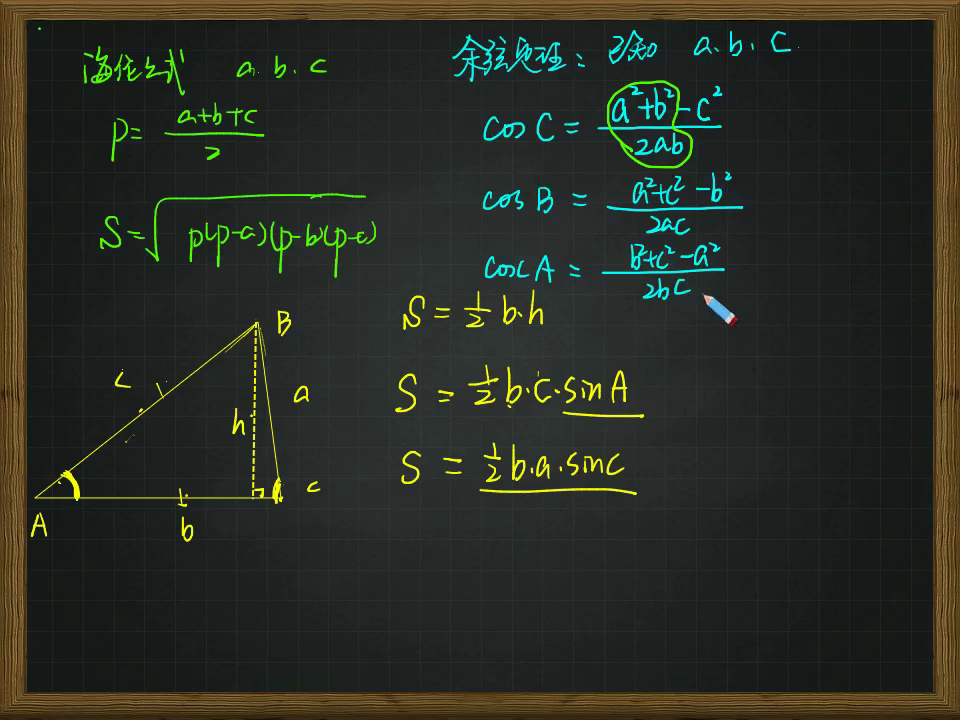 海伦公式 a.b.c
p= a+b+c / 2
S=√p(p-a)(p-b)(p-c)
余弦定理：已知 a.b.c.
cos C = a²+b²-c² / 2ab
cos B = a²+c²-b² / 2ac
cos A = B²+c²-a² / 2bc
S = 1/2 b·h
S = 1/2 b·c·sin A
S = 1/2 b·a·sinc
B
c
a
h
c
A
b